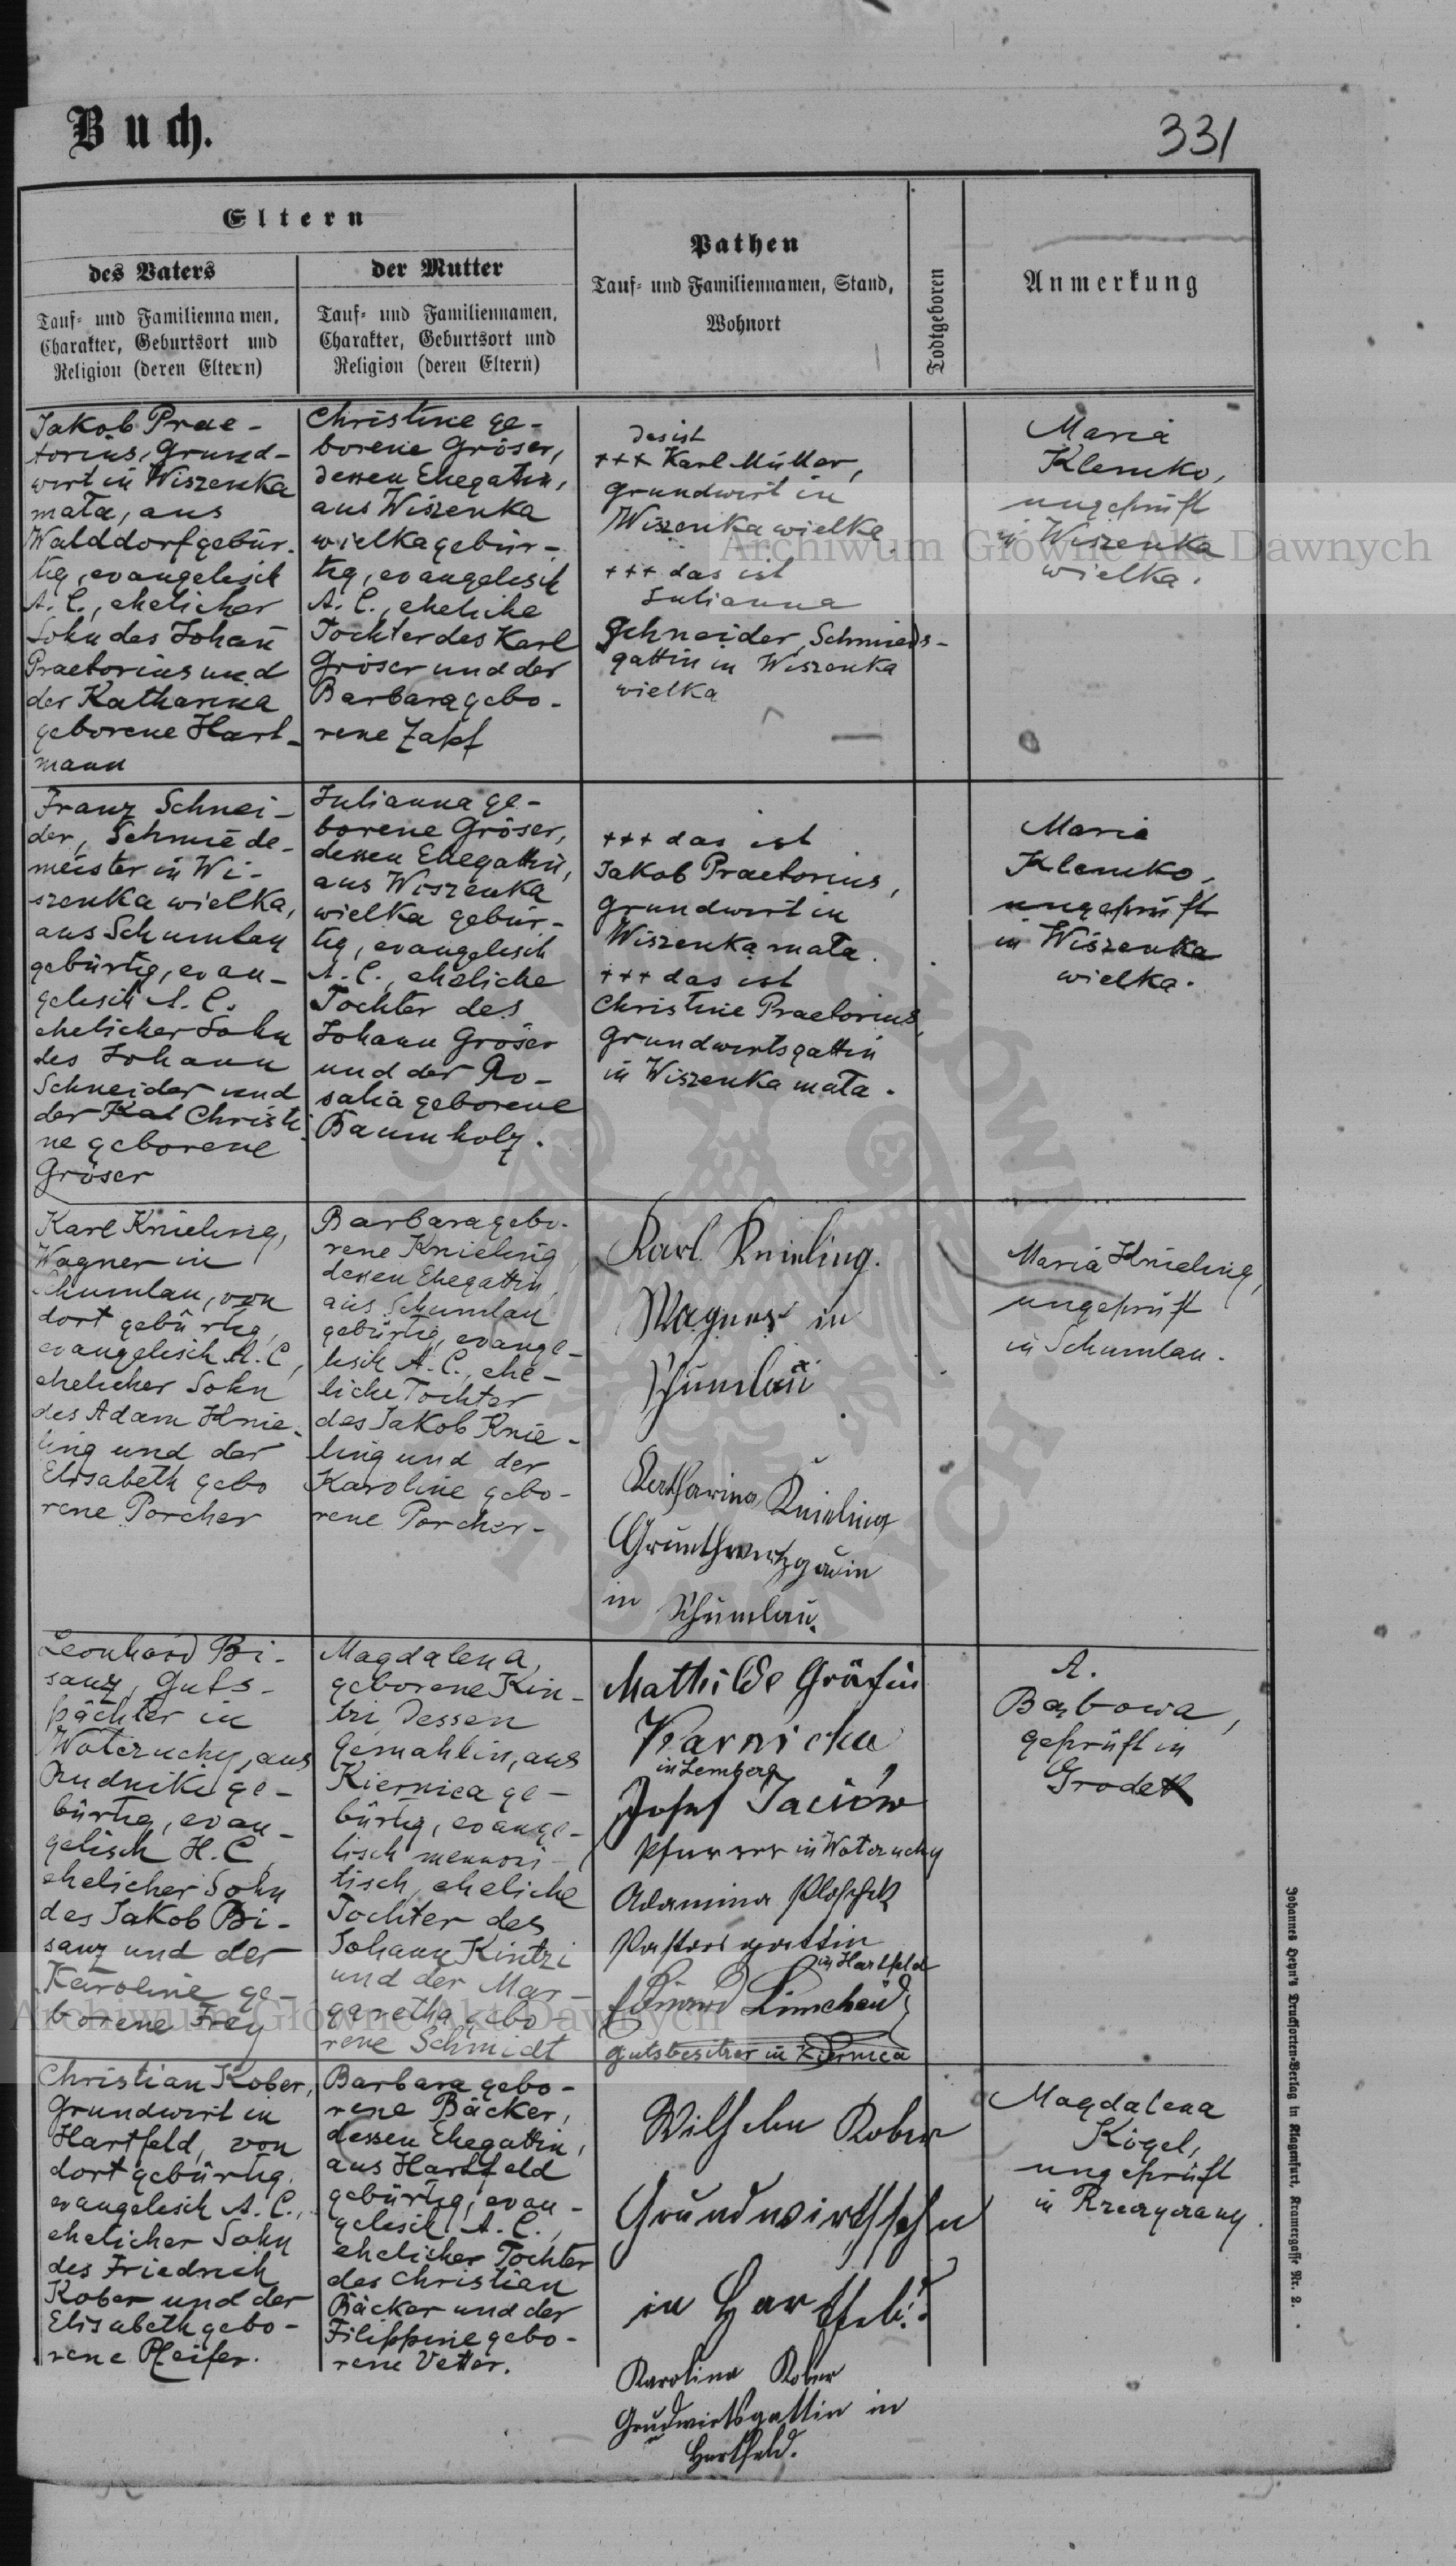 Buch.
331
Eltern
des Vaters
Tauf- und Familiennamen,
Charakter, Geburtsort und
Religion (deren Eltern)
der Mutter
Tauf- und Familiennamen,
Charakter, Geburtsort und
Religion (deren Eltern)
Pathen
Tauf- und Familiennamen, Stand,
Wohnort
Todtgeboren
Anmerkung
Jakob Prae-
torius, Grund-
wirt in Wiszenka
mała, aus
Walddorf gebür-
tig, evangelisch
A. C., ehelicher
Sohn des Johan̄
Praetorius und
der Katharina
geborene Hart-
mann
Christine ge-
borene Gröser,
dessen Ehegattin,
aus Wiszenka
wielka gebür-
tig, evangelisch
A. C., eheliche
Tochter des Karl
Gröser und der
Barbara gebo-
rene Zapf
das ist
+++ Karl Müller,
Grundwirt in
Wiszenka wielka.
+++ das ist
Julianna
Schneider, Schmieds-
gattin in Wiszenka
wielka
Maria
Klemko,
ungeprüft
in Wiszenka
wielka.
Franz Schnei-
der, Schmiede-
meister in Wi-
szenka wielka,
aus Schumlau
gebürtig, evan-
gelisch A. C.
ehelicher Sohn
des Johann
Schneider und
der Kat Christi-
ne geborene
Gröser
Julianna ge-
borene Gröser,
dessen Ehegattin,
aus Wiszenka
wielka gebür-
tig, evangelisch
A. C., eheliche
Tochter des
Johann Gröser
und der Ro-
salia geborene
Baumholz.
+++ das ist
Jakob Praetorius,
Grundwirt in
Wiszenka mała.
+++ das ist
Christine Praetorius,
Grundwirtsgattin
in Wiszenka mała.
Maria
Klemko,
ungeprüft
in Wiszenka
wielka.
Karl Knieling,
Wagner in
Schumlau, von
dort gebürtig,
evangelisch A. C.,
ehelicher Sohn
des Adam Knie-
ling und der
Elisabeth gebo
rene Porcher
Barbara gebo-
rene Knieling
dessen Ehegattin
aus Schumlau
gebürtig, evange-
lisch A. C., ehe-
liche Tochter
des Jakob Knie-
ling und der
Karoline gebo-
rene Porcher-
Karl Knieling.
Wagner in
Schumlau
Katharina Knieling
in Schumlau.
Maria Knieling,
ungeprüft
in Schumlau.
Leonhard Bi-
sanz, Guts-
pächter in
Wołczuchy, aus
Rudniki ge-
bürtig, evan-
gelisch H. C.
ehelicher Sohn
des Jakob Bi-
sanz und der
Karoline ge-
borene Frey
Magdalena,
geborene Kin-
tzi dessen
Gemahlin, aus
Kiernica ge-
bürtig, evange-
lisch mennoni-
tisch, eheliche
Tochter des
Johann Kintzi
und der Mar-
garetha gebo-
rene Schmidt
Mathilde Gräfin
Karnicka
in Lemberg
Josef Jaciów
Pfarrer in Wołczuchy
Adamina Ploschek
Pastorsgattin
in Hartfeld
Gutsbesitzer in Kiernica
A.
Babowa,
geprüft in
Grodek
Christian Kober,
Grundwirt in
Hartfeld, von
dort gebürtig,
evangelisch A. C.,
ehelicher Sohn
des Friedrich
Kober und der
Elisabeth gebo-
rene Pfeifer.
Barbara gebo-
rene Bäcker,
dessen Ehegattin,
aus Hartfeld
gebürtig, evan-
gelisch A. C.,
ehelicher Tochter
des Christian
Bäcker und der
Filippine gebo-
rene Vetter.
Wilhelm Kober
Grundwirthsohn
in Hartfeld.
Karolina Kober
Grudwirtsgattin in
Hartfeld.
Magdalena
Kögel,
ungeprüft
in Rzeczyczany.
Johannes Heyn's Drucksorten-Verlag in Klagenfurt, Kramergasse Nr. 2.
Archiwum Główne Akt Dawnych
Archiwum Główne Akt Dawnych